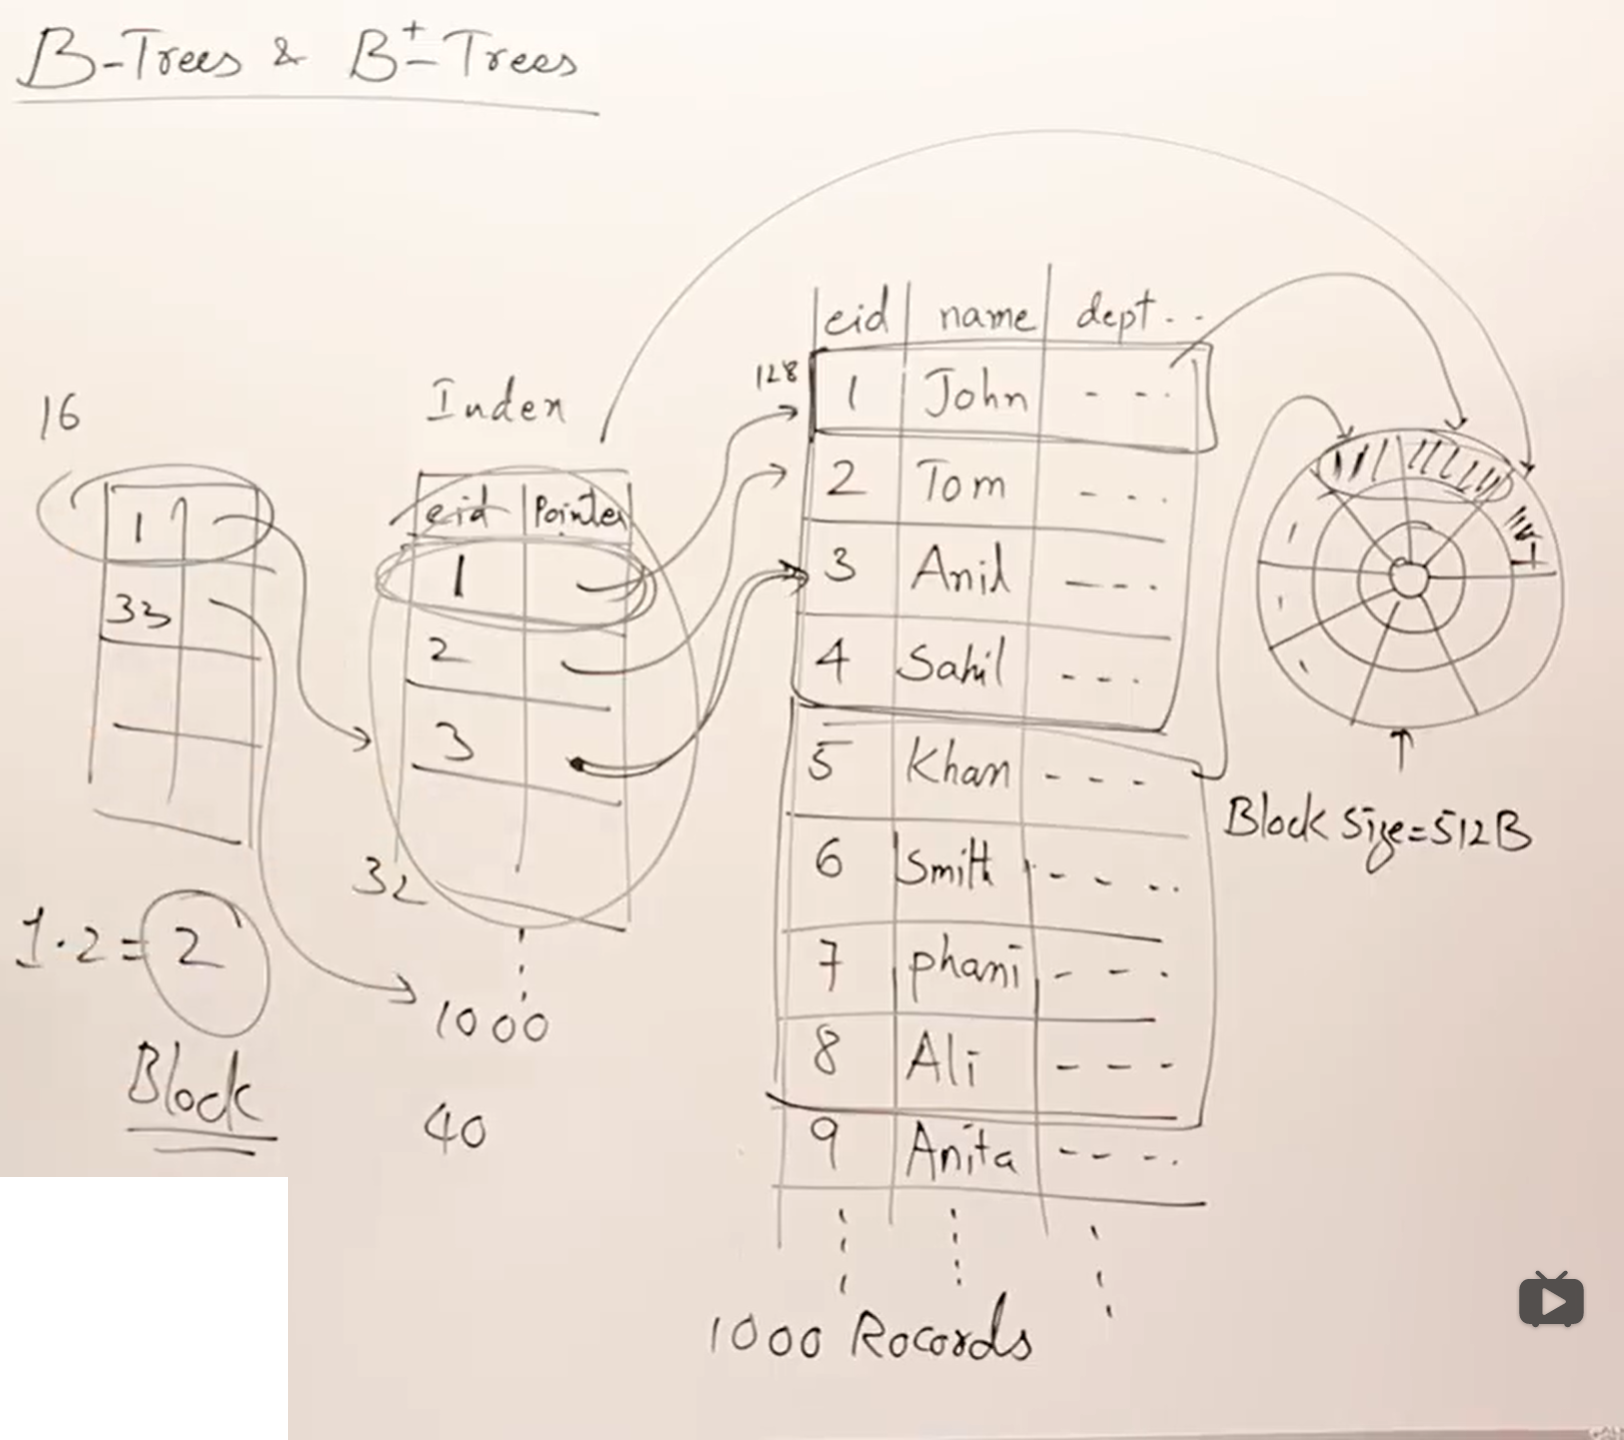 B-Trees & B+-Trees
16
1
33
1.2 = 2
Block
Inden
eid Pointer
1
2
3
32
1000
40
128
eid name dept ..
1 John - - -
2 Tom - - -
3 Anil - - -
4 Sahil - - -
5 Khan - - -
6 Smith - - - -
7 phani - - -
8 Ali - - -
9 Anita - - - -
1000 Rocords
Block Size=512B